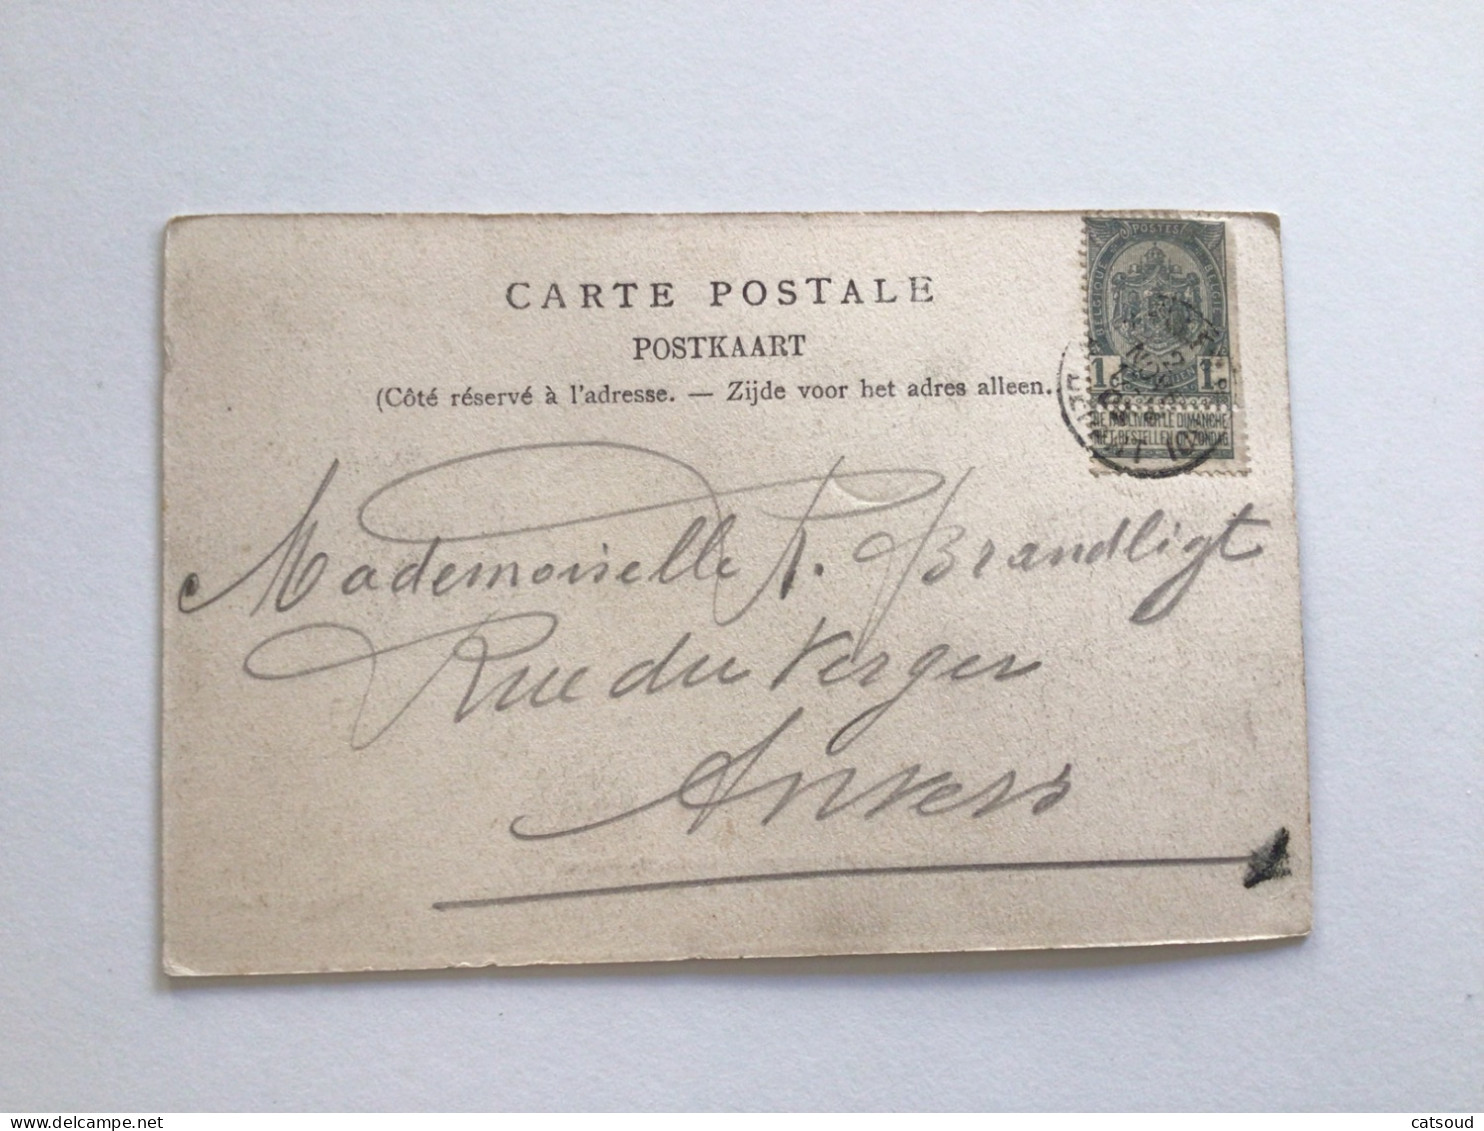 CARTE POSTALE
POSTKAART
(Côté réservé à l'adresse. — Zijde voor het adres alleen.
POSTES
BELGIQUE
BELGIE
1 1
NE PAS LIVRER LE DIMANCHE
NIET BESTELLEN OP ZONDAG
Mademoiselle A. Brandligt
Rue du Verger
Anvers
catsoud